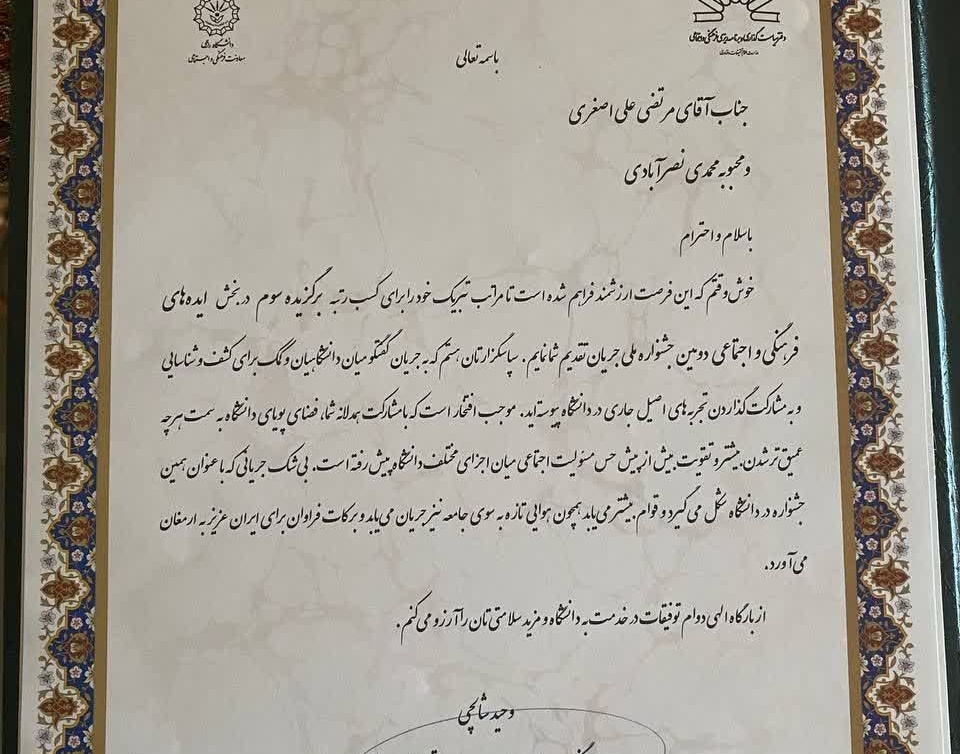 دانشگاه رازی
معاونت فرهنگی و اجتماعی
دفتر سیاست گذاری و برنامه ریزی فرهنگی و اجتماعی
باسمه تعالی
جناب آقای مرتضی علی اصغری
و محبوبه محمدی نصرآبادی
باسلام و احترام
خوش وقتم که این فرصت ارزشمند فراهم شده است تا مراتب تبریک خود را برای کسب رتبه برگزیده سوم در بخش ایده های
فرهنگی و اجتماعی دومین جشنواره ملی جریان تقدیم شما نمایم. سپاسگزارتان هستم که به جریان گفتگو میان دانشگاهیان و کمک برای کشف و شناسایی
و به مشارکت گذاردن تجربه های اصیل جاری در دانشگاه پیوسته اید. موجب افتخار است که با مشارکت همدلانه شما، فضای پویای دانشگاه به سمت هرچه
عمیق تر شدن بیشتر و تقویت بیش از پیش حس مسئولیت اجتماعی میان اجزای مختلف دانشگاه پیش رفته است. بی شک جریانی که با عنوان همین
جشنواره در دانشگاه شکل می گیرد و قوام بیشتر می یابد همچون هوایی تازه به سوی جامعه نیز جریان می یابد و برکات فراوان برای ایران عزیز به ارمغان
می آورد.
از بارگاه الهی دوام توفیقات در خدمت به دانشگاه و مزید سلامتی تان را آرزو می کنم.
وحید شالچی